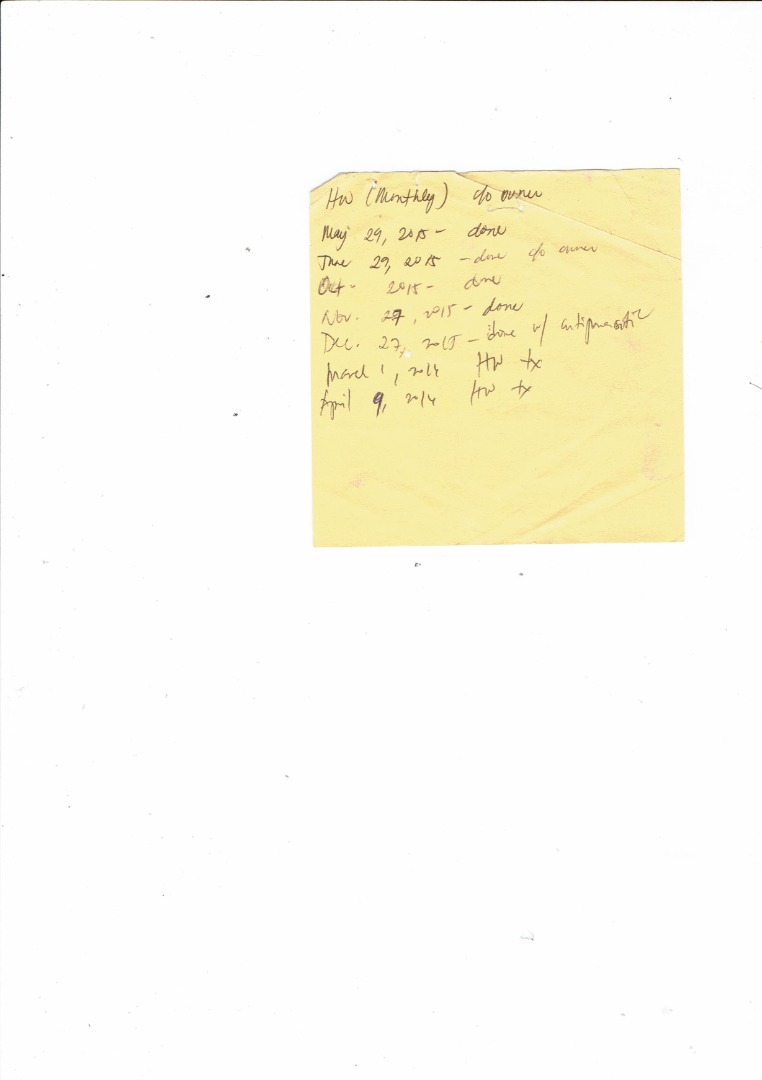 HW (Monthly) c/o owner
May 29, 2015 - done
June 29, 2015 - done c/o owner
Oct - 2015 - done
Nov. 27, 2015 - done
Dec. 27, 2015 - done w/ antiparasitic
March 1, HW tx
April 9, HW tx